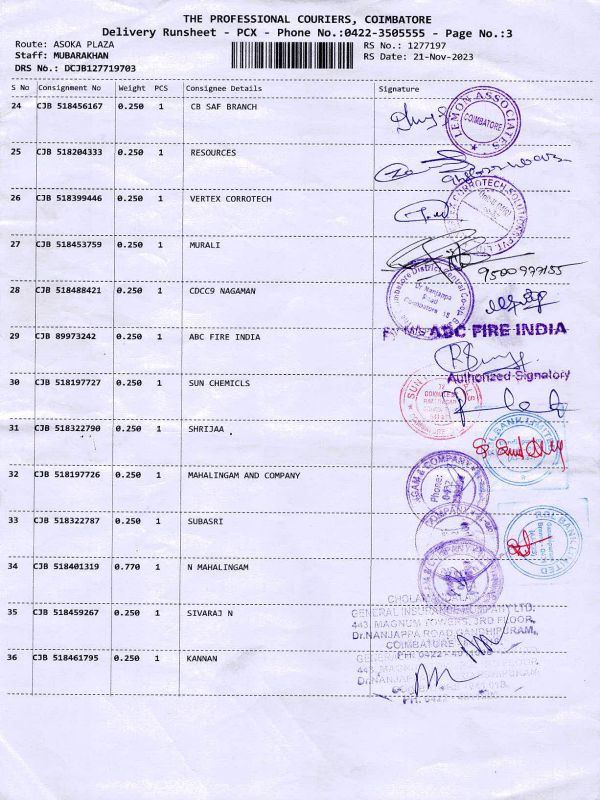 THE PROFESSIONAL COURIERS, COIMBATORE
Delivery Runsheet - PCX - Phone No.:0422-3505555 - Page No.:3
Route: ASOKA PLAZA RS No.: 1277197
Staff: MUBARAKHAN RS Date: 21-Nov-2023
DRS No.: DCJB127719703
S No Consignment No Weight PCS Consignee Details Signature
24 CJB 518456167 0.250 1 CB SAF BRANCH
LEMON ASSOCIATES COIMBATORE
25 CJB 518204333 0.250 1 RESOURCES
26 CJB 518399446 0.250 1 VERTEX CORROTECH
27 CJB 518453759 0.250 1 MURALI
9500977155
28 CJB 518488421 0.250 1 CDCC9 NAGAMAN
Dr. Nanjappa
Road
Coimbatore 18
29 CJB 89973242 0.250 1 ABC FIRE INDIA
ABC FIRE INDIA
Authorized Signatory
30 CJB 518197727 0.250 1 SUN CHEMICLS
31 CJB 518322790 0.250 1 SHRIJAA
32 CJB 518197726 0.250 1 MAHALINGAM AND COMPANY
33 CJB 518322787 0.250 1 SUBASRI
34 CJB 518401319 0.770 1 N MAHALINGAM
35 CJB 518459267 0.250 1 SIVARAJ N
GENERAL INSURANCE COMPANY LTD.
443, MAGNUM TOWERS, 3RD FLOOR,
Dr.NANJAPPA ROAD,
COIMBATORE
36 CJB 518461795 0.250 1 KANNAN